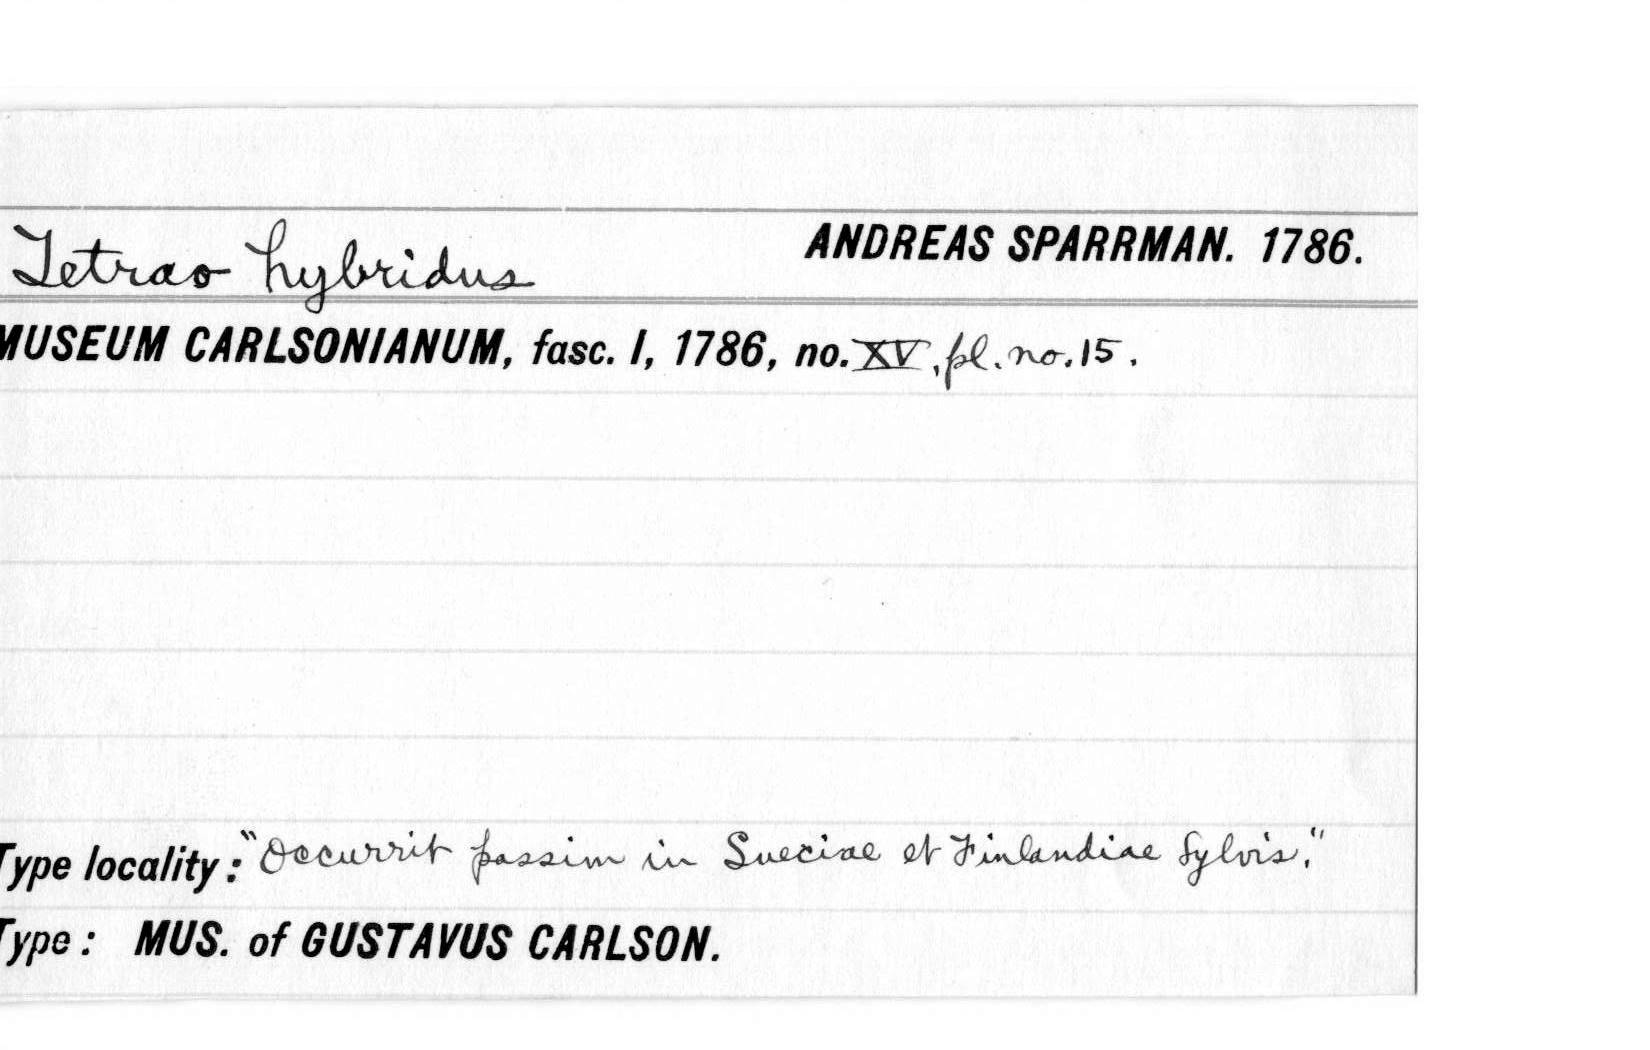 Tetrao hybridus ANDREAS SPARRMAN. 1786.
MUSEUM CARLSONIANUM, fasc. I, 1786, no. XV, pl. no. 15.
Type locality: "Occurrit passim in Sueciae et Finlandiae Sylvis."
Type: MUS. of GUSTAVUS CARLSON.